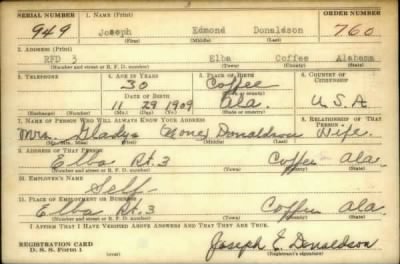 SERIAL NUMBER 1. NAME (Print) ORDER NUMBER
949 Joseph Edmond Donaldson 760
(First) (Middle) (Last)
2. ADDRESS (Print)
RFD 3 Elba Coffee Alabama
(Number and street or R. F. D. number) (Town) (County) (State)
3. TELEPHONE 4. AGE IN YEARS 5. PLACE OF BIRTH 6. COUNTRY OF CITIZENSHIP
30 Coffee
DATE OF BIRTH (Town or county)
11 29 1909 Ala. U.S.A
(Exchange) (Number) (Mo.) (Day) (Yr.) (State or country)
7. NAME OF PERSON WHO WILL ALWAYS KNOW YOUR ADDRESS 8. RELATIONSHIP OF THAT PERSON
Mrs. Gladys Donaldson Wife.
(Mr., Mrs., Miss) (First) (Middle) (Last)
9. ADDRESS OF THAT PERSON
Elba Rt. 3 Coffee Ala.
(Number and street or R. F. D. number) (Town) (County) (State)
10. EMPLOYER'S NAME
Self
11. PLACE OF EMPLOYMENT OR BUSINESS
Elba Rt. 3 Coffee Ala.
(Number and street or R. F. D. number) (Town) (County) (State)
I AFFIRM THAT I HAVE VERIFIED ABOVE ANSWERS AND THAT THEY ARE TRUE.
REGISTRATION CARD
D. S. S. Form 1 Joseph E. Donaldson
(Registrant's signature)